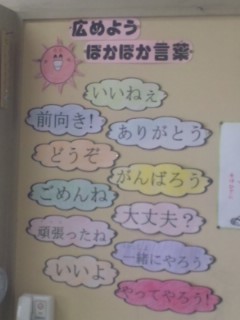 広めよう
ぽかぽか言葉
いいねぇ
前向き!
ありがとう
どうぞ
がんばろう
ごめんね
大丈夫?
頑張ったね
一緒にやろう
いいよ
やってやろう!